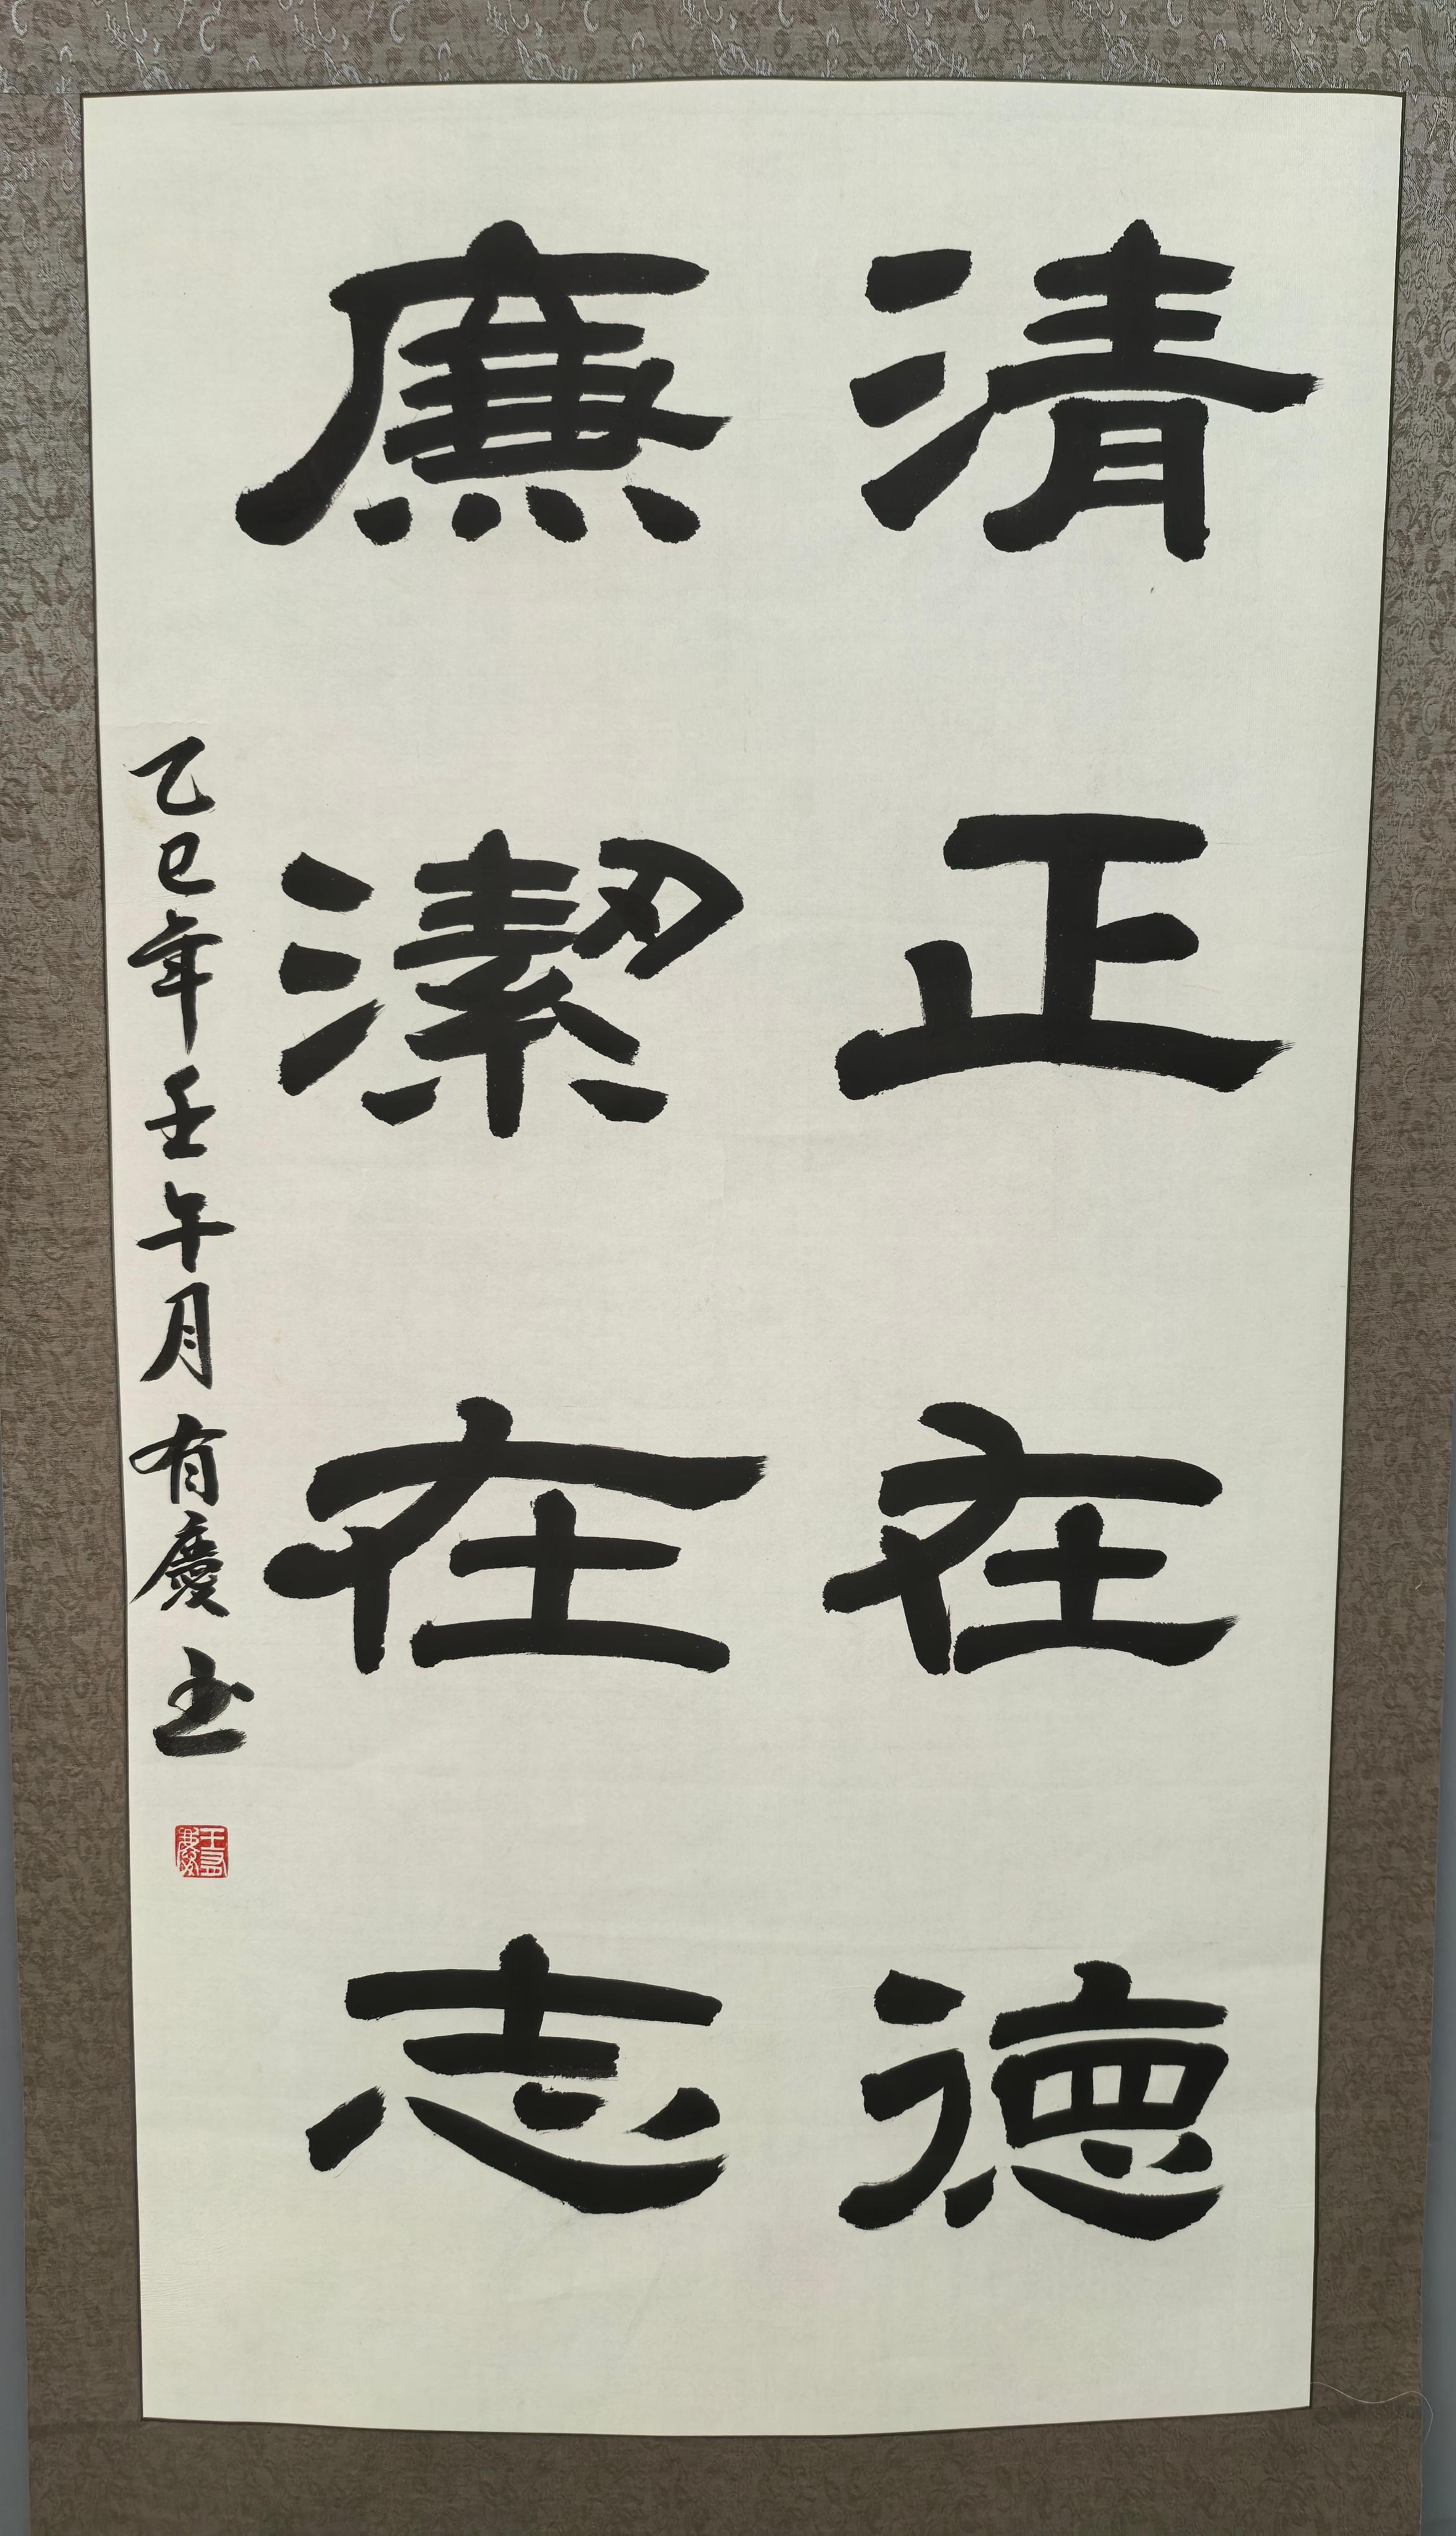 清正在德
廉潔在志
乙巳年壬午月有慶书
王有慶